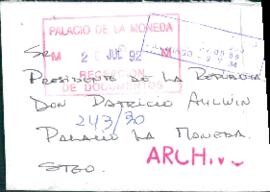 PALACIO DE LA MONEDA
M 2 JUL 92 M
REGISTRO
DE DOCUMENTOS
SR.
PRESIDENTE DE LA REPUBLICA
DON PATRICIO AYLWIN
243/30
PALACIO LA MONEDA.
STGO.
ARCH